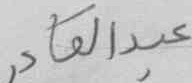 عبدالقادر